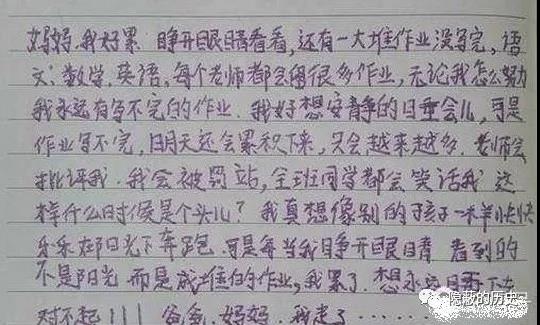 妈妈,我好累 睁开眼睛看看,还有一大堆作业没写完,语
文:数学,英语,每个老师都会留很多作业,无论我怎么努力
我永远有写不完的作业.我好想安静的睡会儿,可是
作业写不完,明天还会累积下来,只会越来越多.老师会
批评我.我会被罚站,全班同学都会笑话我 这
样什么时候是个头儿?我真想像别的孩子一样快快
乐乐在阳光下奔跑.可是每当我睁开眼睛 看到的
不是阳光 而是成堆的作业,我累了.想永远睡下去
对不起!!!爸爸,妈妈.我走了......
隐蔽的历史